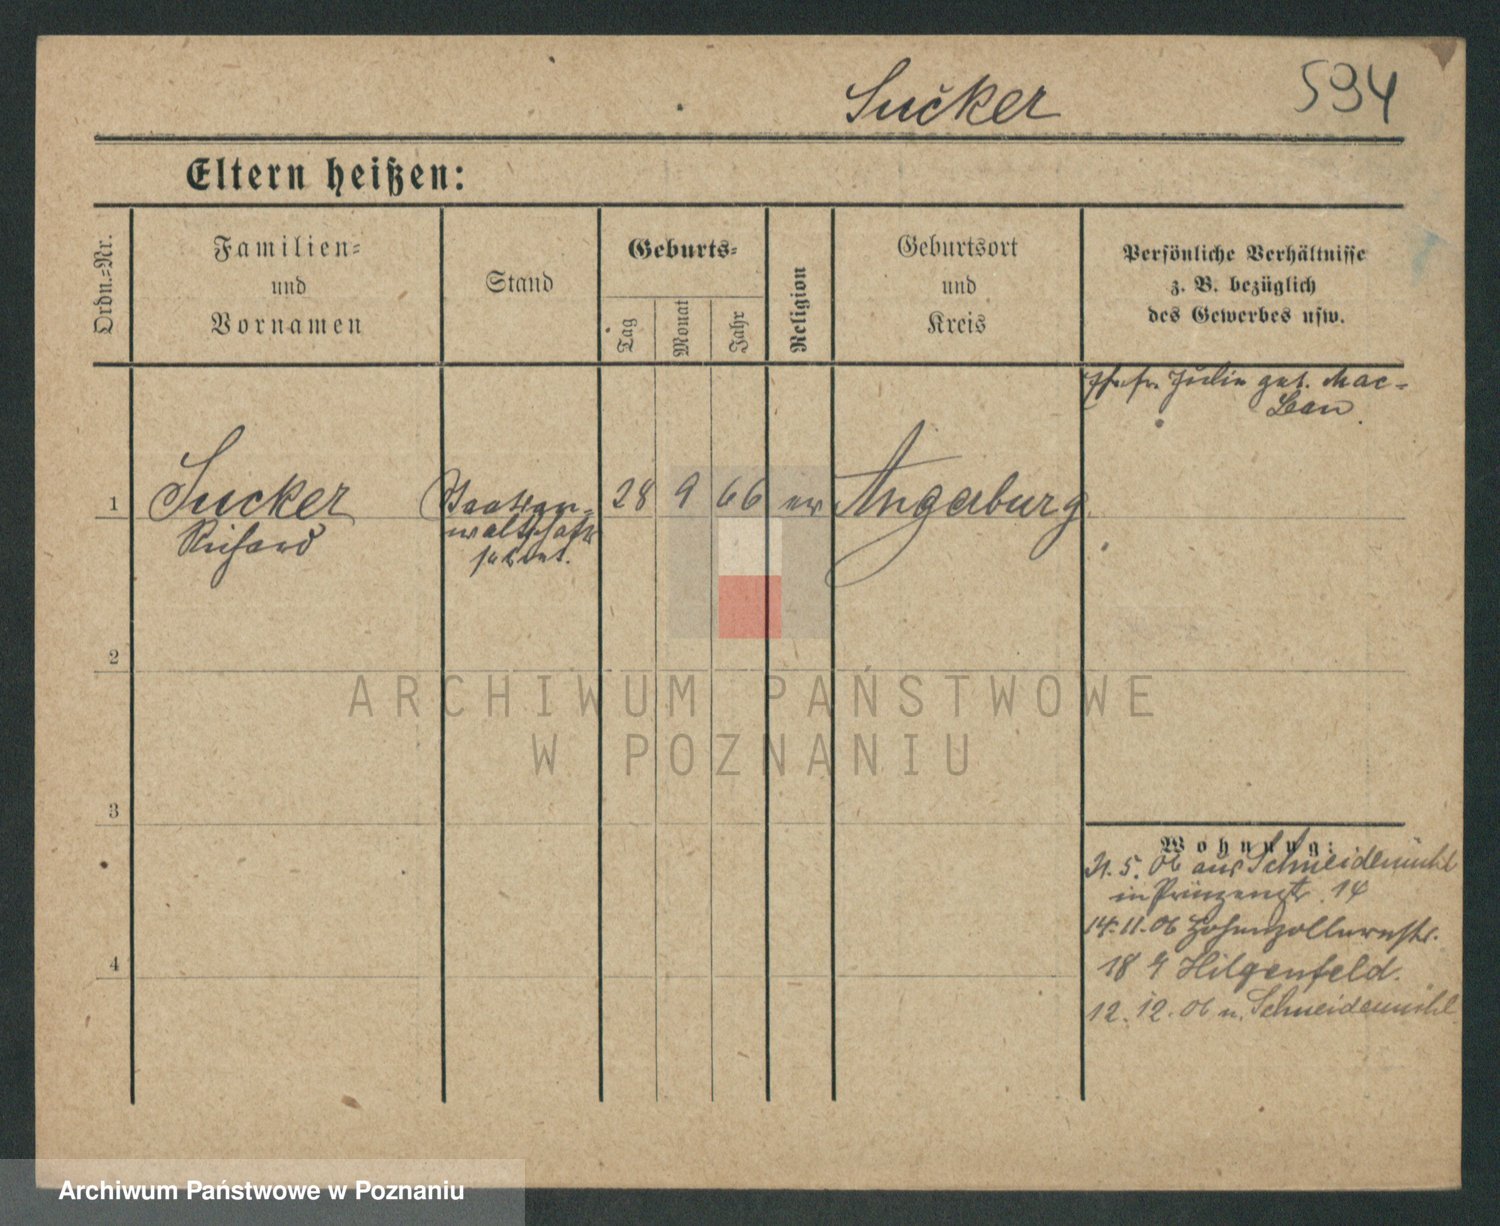 Sucker 594
Eltern heißen:
Ordn.=Nr.
Familien=
und
Vornamen
Stand
Geburts=
Tag
Monat
Jahr
Religion
Geburtsort
und
Kreis
Persönliche Verhältnisse
z. B. bezüglich
des Gewerbes usw.
geb. Mac-
Lean.
1 Sucker 28 9 66 ev Angerburg
Richard
Staatsan-
waltschafts
sekret.
2
3
4
Wohnung:
5. 06 aus Schneidemühl
in Prinzenstr. 14
14.11.06 Hohenzollernstr.
18 Hilgenfeld.
12.12.06 n. Schneidemühl
ARCHIWUM PAŃSTWOWE
W POZNANIU
Archiwum Państwowe w Poznaniu